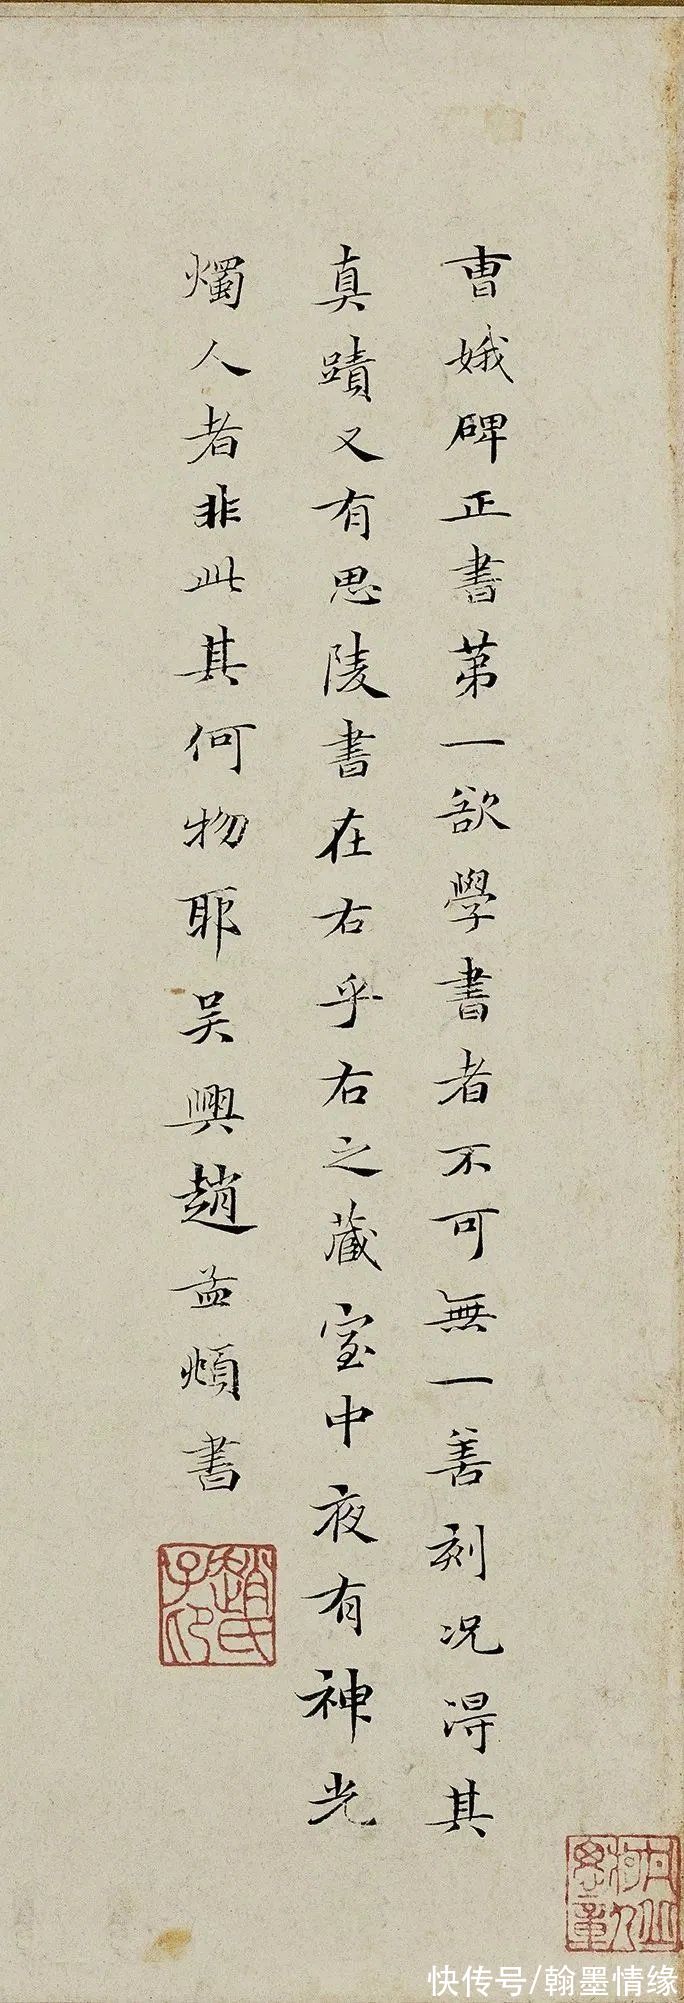 曺娥碑正書第一欲學書者不可無一善刻况得其
真蹟又有思陵書在右乎右之藏室中夜有神光
燭人者非此其何物耶吴興趙孟頫書
趙氏子印
快传号/翰墨情缘